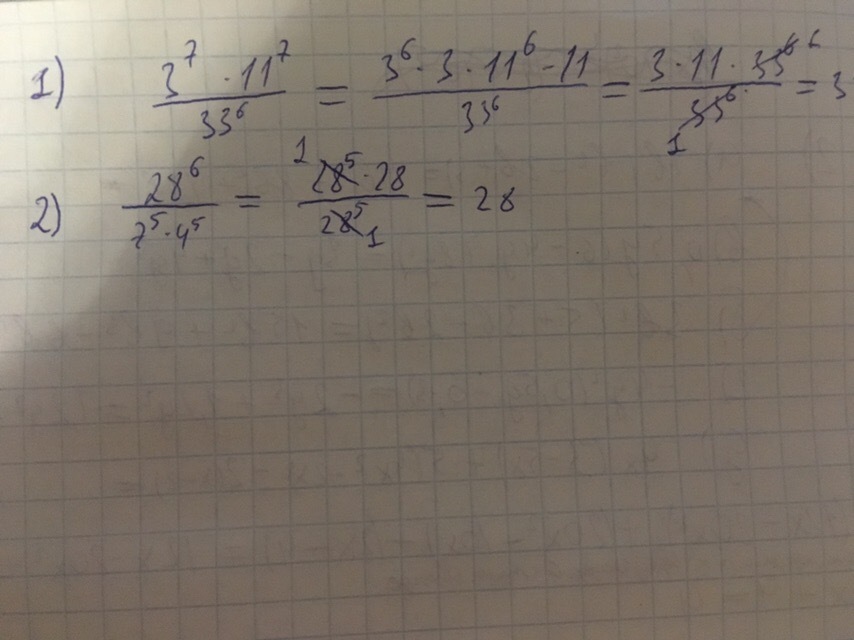 1) 3^7 · 11^7 / 33^6 = 3^6 · 3 · 11^6 - 11 / 33^6 = 3 · 11 · 33^6 6 / 33^6 · 1 = 3
2) 28^6 / 7^5 · 4^5 = 1 28^5 · 28 / 28^5 1 = 28